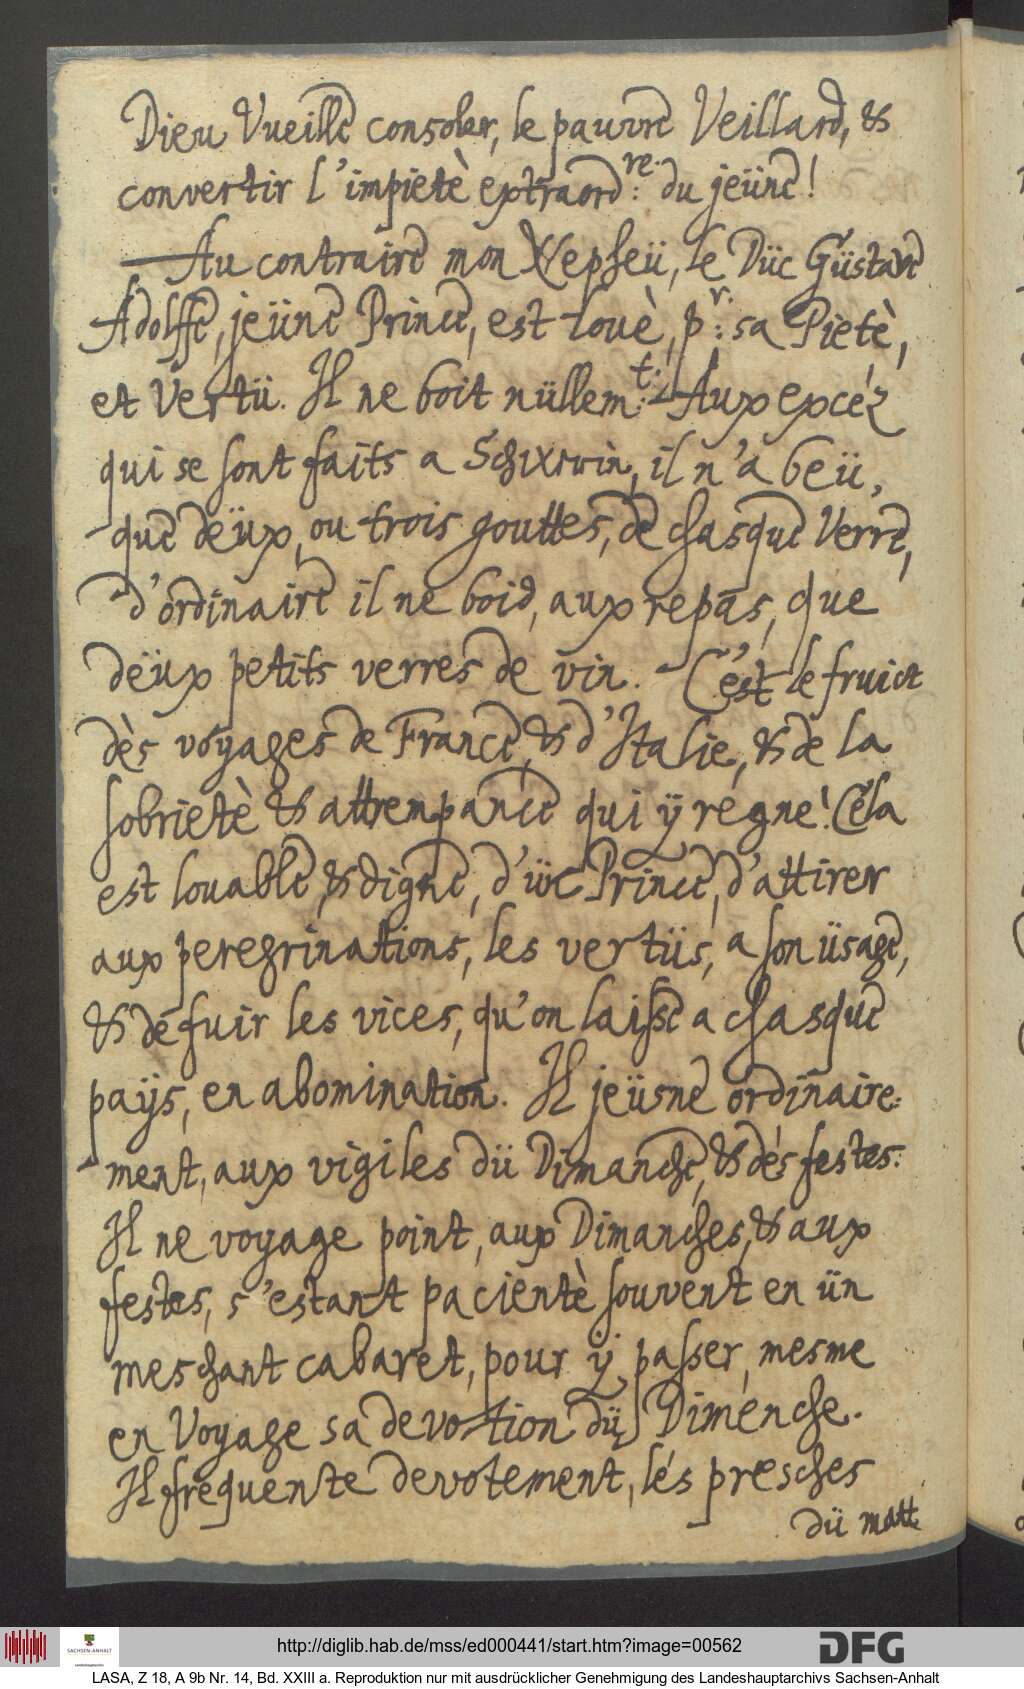 Dieu Vueille consoler, le pauvre Veillard, &
convertir l'impietè extraord:re du jeüne!
Au contraire mon Nepfeü, le Düc Güstave
Adolffe, jeüne Prince, est louè, p:r sa Pietè,
et Vertü. Il ne boit nüllem:t Aux excéz
qui se sont faits a Schwerin, il n'a beü,
que deüx, ou trois gouttes, de chasque Verre,
d'ordinaire il ne boid, aux repas, que
deüx petits verres de vin. C'est le fruict
dès voyages de France, & d'Italie, & de la
sobrietè & attrempance qui ÿ régne! Cela
est louable, & digne, d'ün Prince, d'attirer
aux peregrinations, les vertüs, a son üsage,
& de fuir les vices, qu'on laisse a chasque
païs, en abomination. Il jeüsne ordinaire-
ment, aux vigiles dü Dimanche, & dés festes.
Il ne voyage point, aux Dimanches, & aux
festes, s'estant pacientè souvent en ün
meschant cabaret, pour ÿ passer, mesme
en Voyage sa devotion dü Dimenche.
Il frequente devotement, lés presches
dü matt:
http://diglib.hab.de/mss/ed000441/start.htm?image=00562
SACHSEN-ANHALT
DFG
LASA, Z 18, A 9b Nr. 14, Bd. XXIII a. Reproduktion nur mit ausdrücklicher Genehmigung des Landeshauptarchivs Sachsen-Anhalt